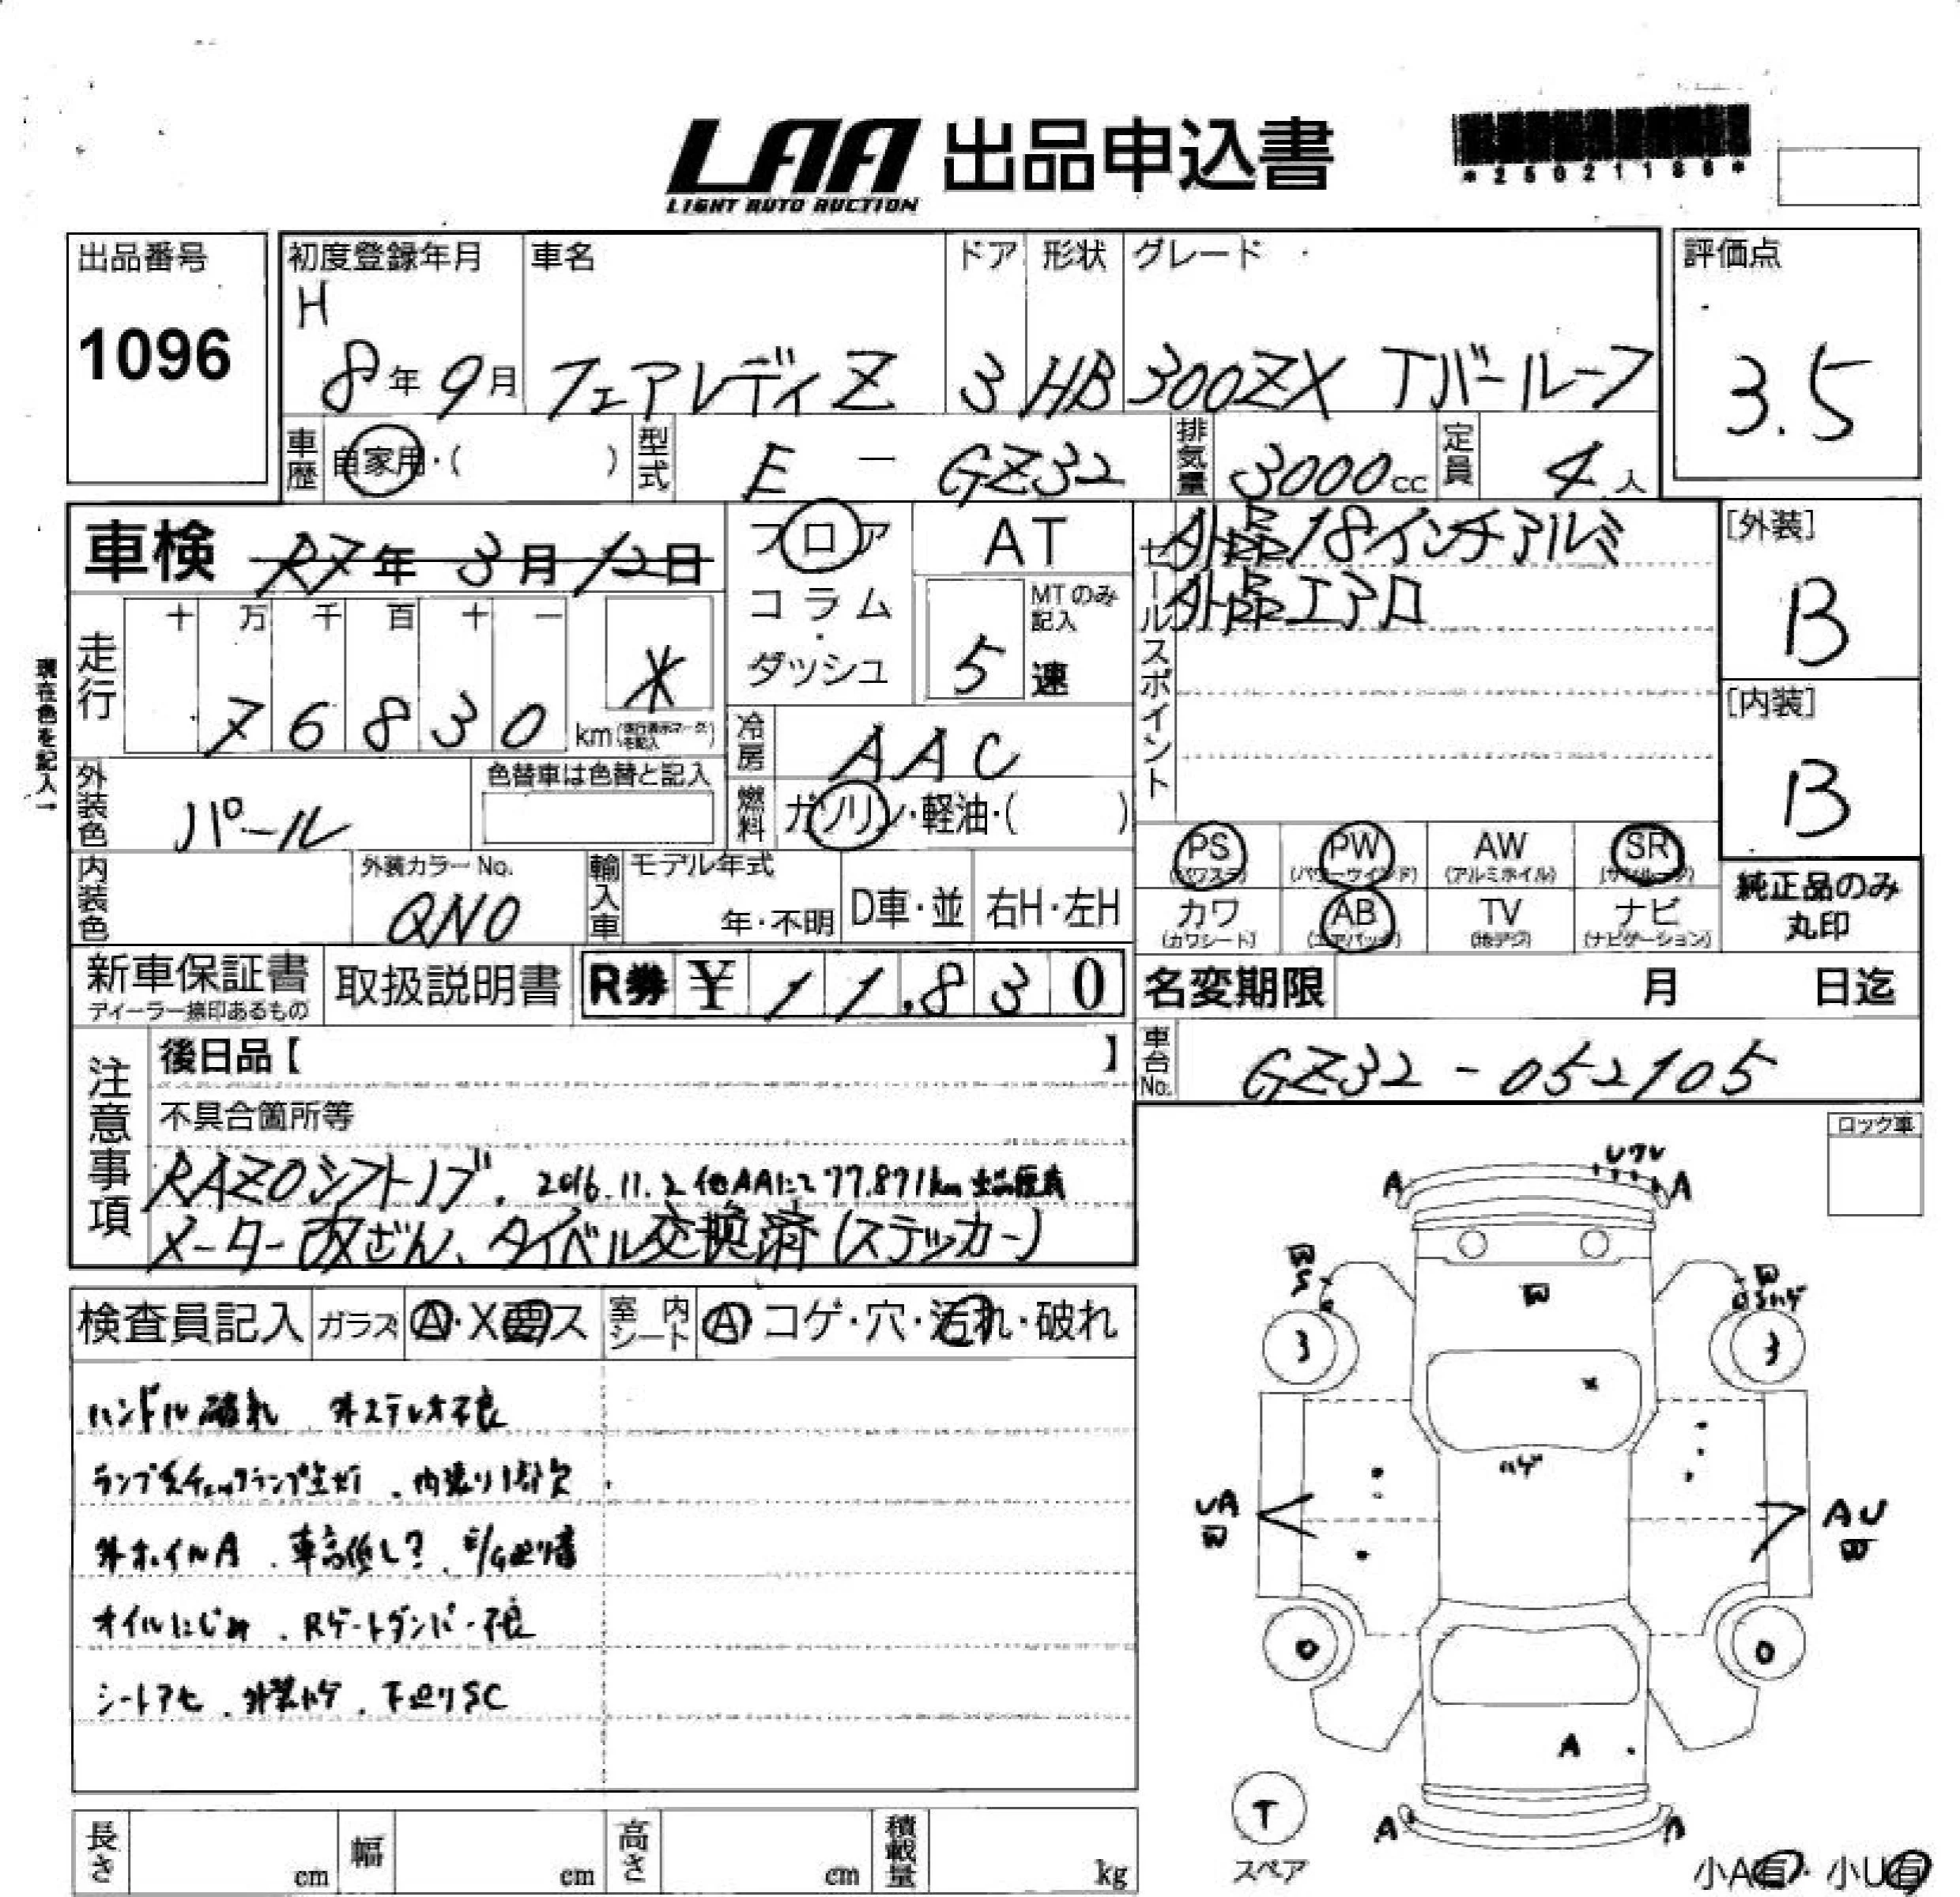 LAA 出品申込書
LIGHT AUTO AUCTION
*25021186*
出品番号
1096
初度登録年月 車名 ドア 形状 グレード
H
8年9月 フェアレディZ 3 HB 300ZX Tバールーフ
評価点
3.5
車歴 自家用・( ) 型式 E - GZ32 排気量 3000cc 定員 4人
車検 R7年3月12日
フロア
コラム
・
ダッシュ
AT
MTのみ記入
5速
セールスポイント
外品18インチアルミ
外品エアロ
[外装]
B
[内装]
B
現在色を記入→
走行 十 万 千 百 十 一
76830 km *
冷房 AAC
外装色 パール 色替車は色替と記入
燃料 ガソリン・軽油・( )
PS (パワステ) PW (パワーウインド) AW (アルミホイル) SR (サンルーフ)
カワ (カワシート) AB (エアバッグ) TV (地デジ) ナビ (ナビゲーション)
純正品のみ
丸印
内装色 外装カラーNo. QN0 輸入車 モデル年式 年・不明 D車・並 右H・左H
新車保証書 取扱説明書 R券 ¥ 11,830
ディーラー捺印あるもの
名変期限 月 日迄
車台No. GZ32-052105
注意事項
後日品【 】
不具合箇所等
RAZOシフトノブ、2016.11.2 他AAにて77.871km 出品歴有
メーター改ざん、タイベル交換済(ステッカー)
ロック車
検査員記入 ガラス A・X要ス 室内シート A コゲ・穴・汚れ・破れ
ハンドル破れ 外ステレオ不良
内張り1部欠
外ホイルA、車高低し?、E/G廻り音
オイルにじみ、Rゲートダンパー不良
シートアセ、外装ハゲ、下廻りSC
A A
W
S
W
3 3
W
x
ハゲ
UA
W
AU
W
0 0
A
T
スペア
A A
小A有・小U有
長さ cm 幅 cm 高さ cm 積載量 kg